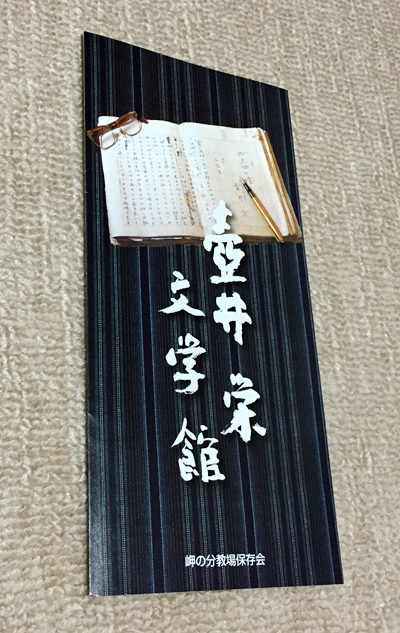 壺井栄
文学館
岬の分教場保存会